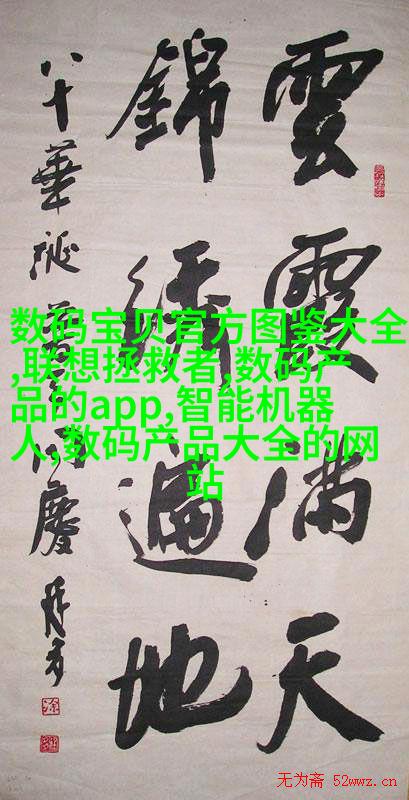 雲霞滿天
錦繡遍地
八十華誕 同慶
数码宝贝官方图鉴大全
,联想拯救者,数码产
品的app,智能机器
人,数码产品大全的网
站
无为斋 52wwz.cn